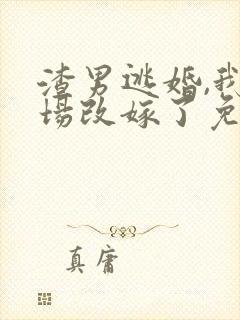 渣男逃婚,我
场改嫁了免
真庸